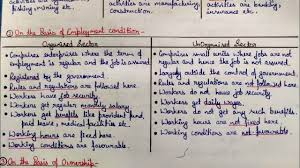 fishing, mining etc.
activities are manufacturing, construction.
activities are banking, insurance etc.
② On the Basis of Employment condition -
Organised Sector
• Comprises enterprises where the term of employment is regular and the job is assured.
• Registered by the government.
• Rules and regulations are followed here
• Workers have job security.
• Workers get regular monthly salary
• Workers get benefits like provident fund, paid leave, medical facilities etc.
• Working hours are fixed here.
• Working conditions are favourable.
UnOrganised Sector
• Comprises small units where jobs are not regular and hence the job is not assured.
• largely outside the control of government.
• Rules and regulations are not followed here
• Workers do not have job security
• Workers get daily wages.
• Workers do not get any such benefits.
• Working hours are not fixed here
• Working conditions are not favourable.
③ On the Basis of Ownership-